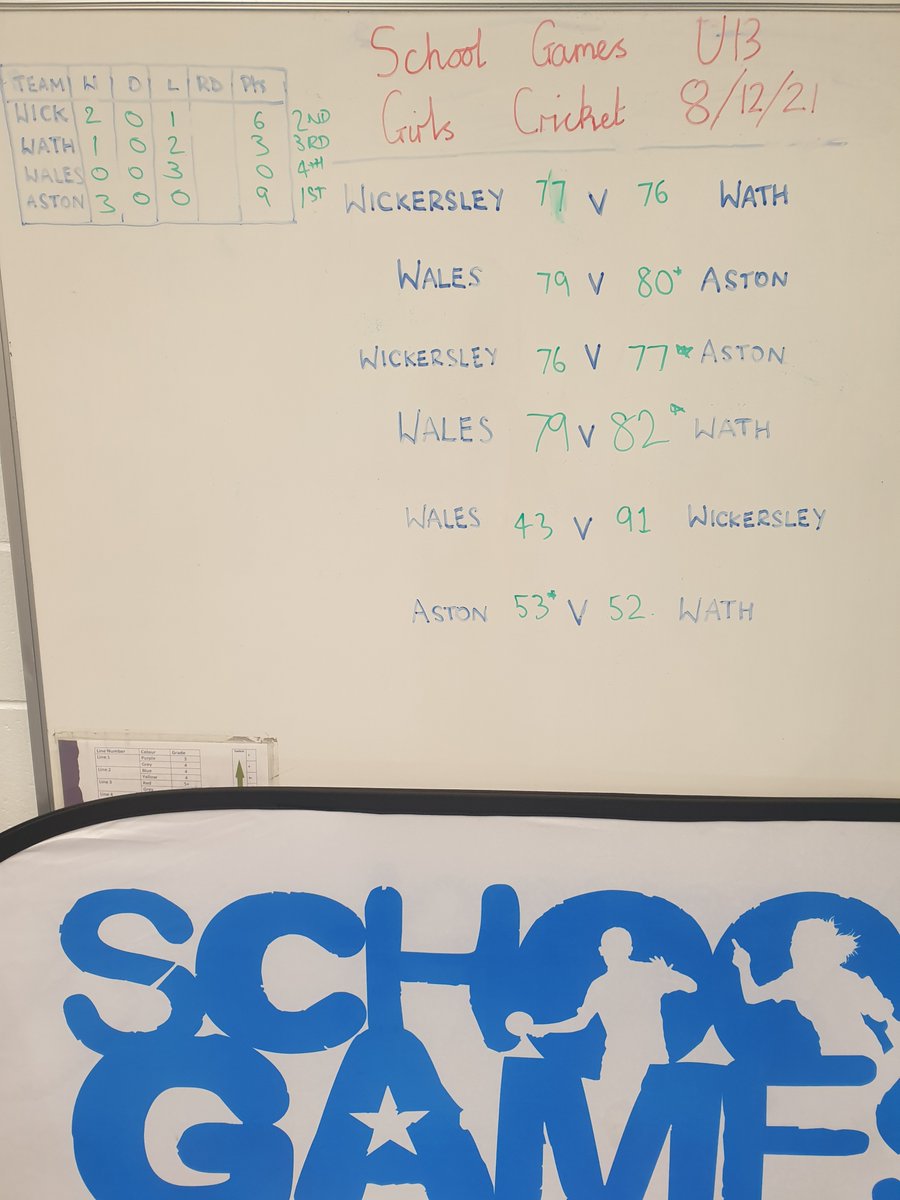 School Games U13
Girls Cricket 8/12/21
TEAM W D L RD Pts
WICK 2 0 1 6 2ND
WATH 1 0 2 3 3RD
WALES 0 0 3 0 4TH
ASTON 3 0 0 9 1ST
WICKERSLEY 77 V 76 WATH
WALES 79 V 80* ASTON
WICKERSLEY 76 V 77* ASTON
WALES 79 V 82* WATH
WALES 43 V 91 WICKERSLEY
ASTON 53* V 52. WATH
Line Number Colour Grade
Line 1 Purple 3
Grey 4
Line 2 Blue 4
Yellow 4
Line 3 Red 5+
Grey
SCHOO
GAMES